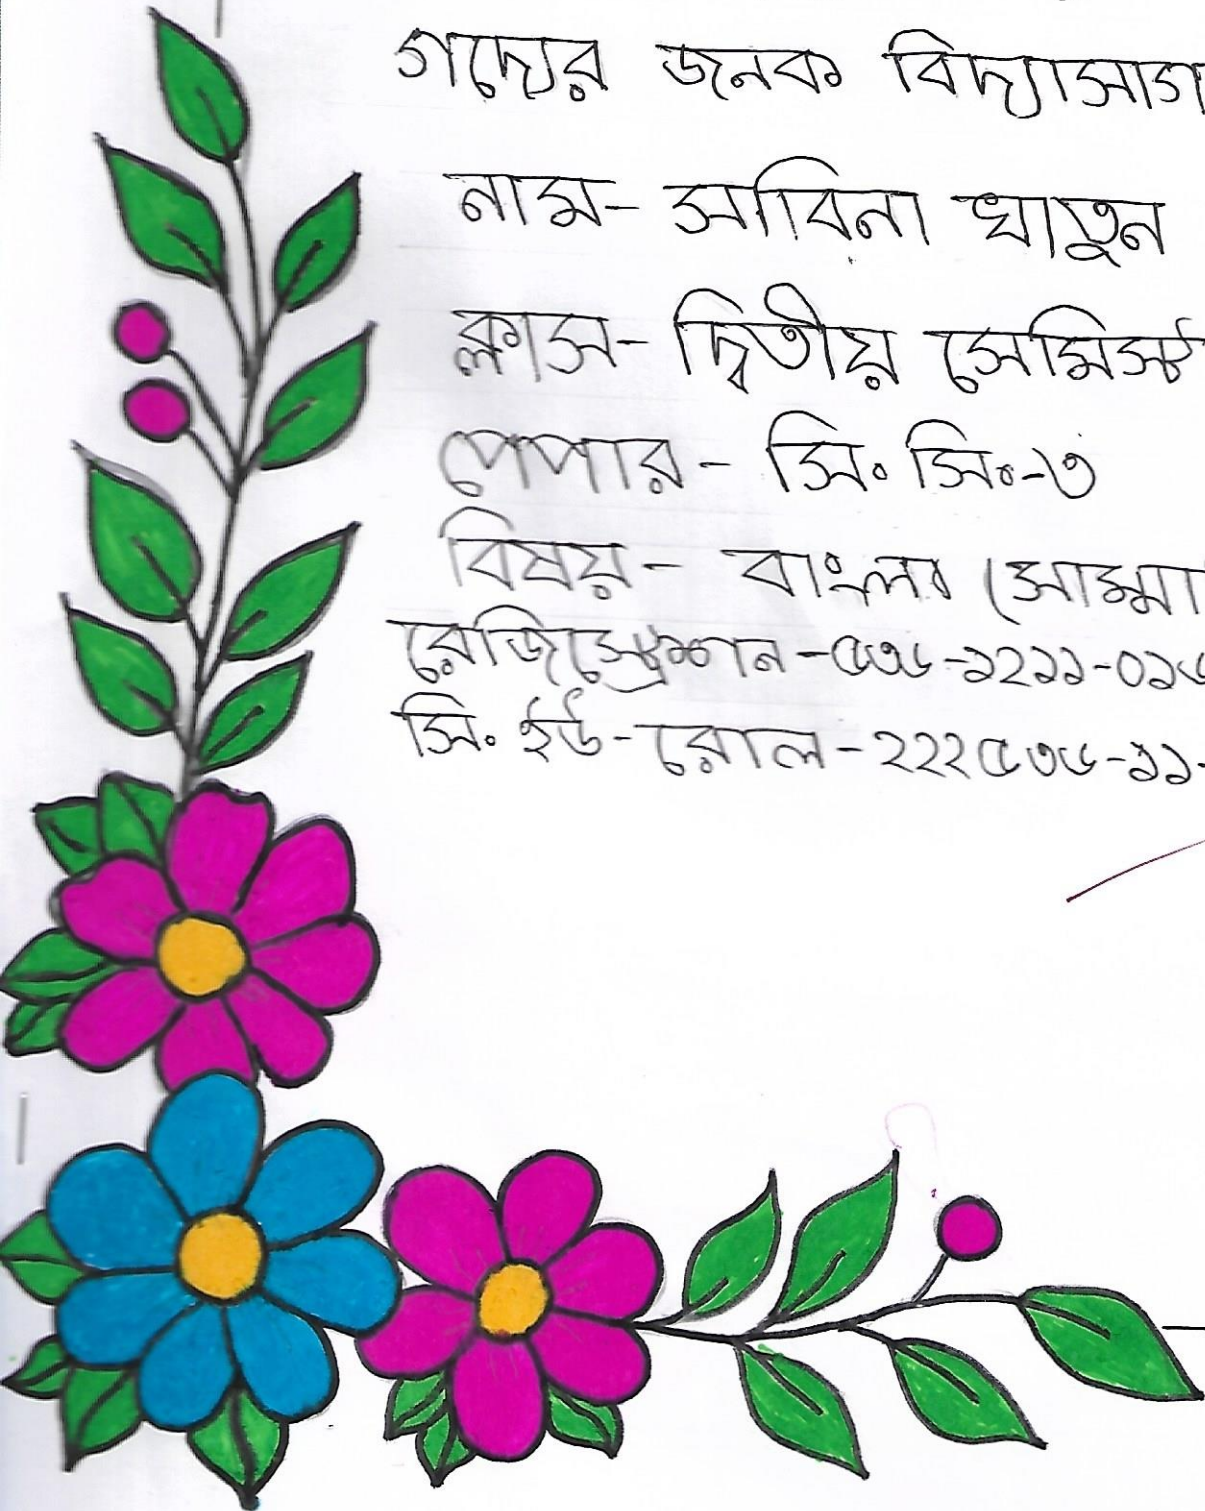 গদ্যের জনক বিদ্যাসাগ
নাম- সাবিনা খাতুন
ক্লাস- দ্বিতীয় সেমিস্ট
পেপার - সি. সি.-৩
বিষয় - বাংলা (সাম্মা
রেজিস্ট্রেশান -৫৩৬-১২১১-০১৬
সি. ইউ-রোল-২২২৫৩৬-১১-